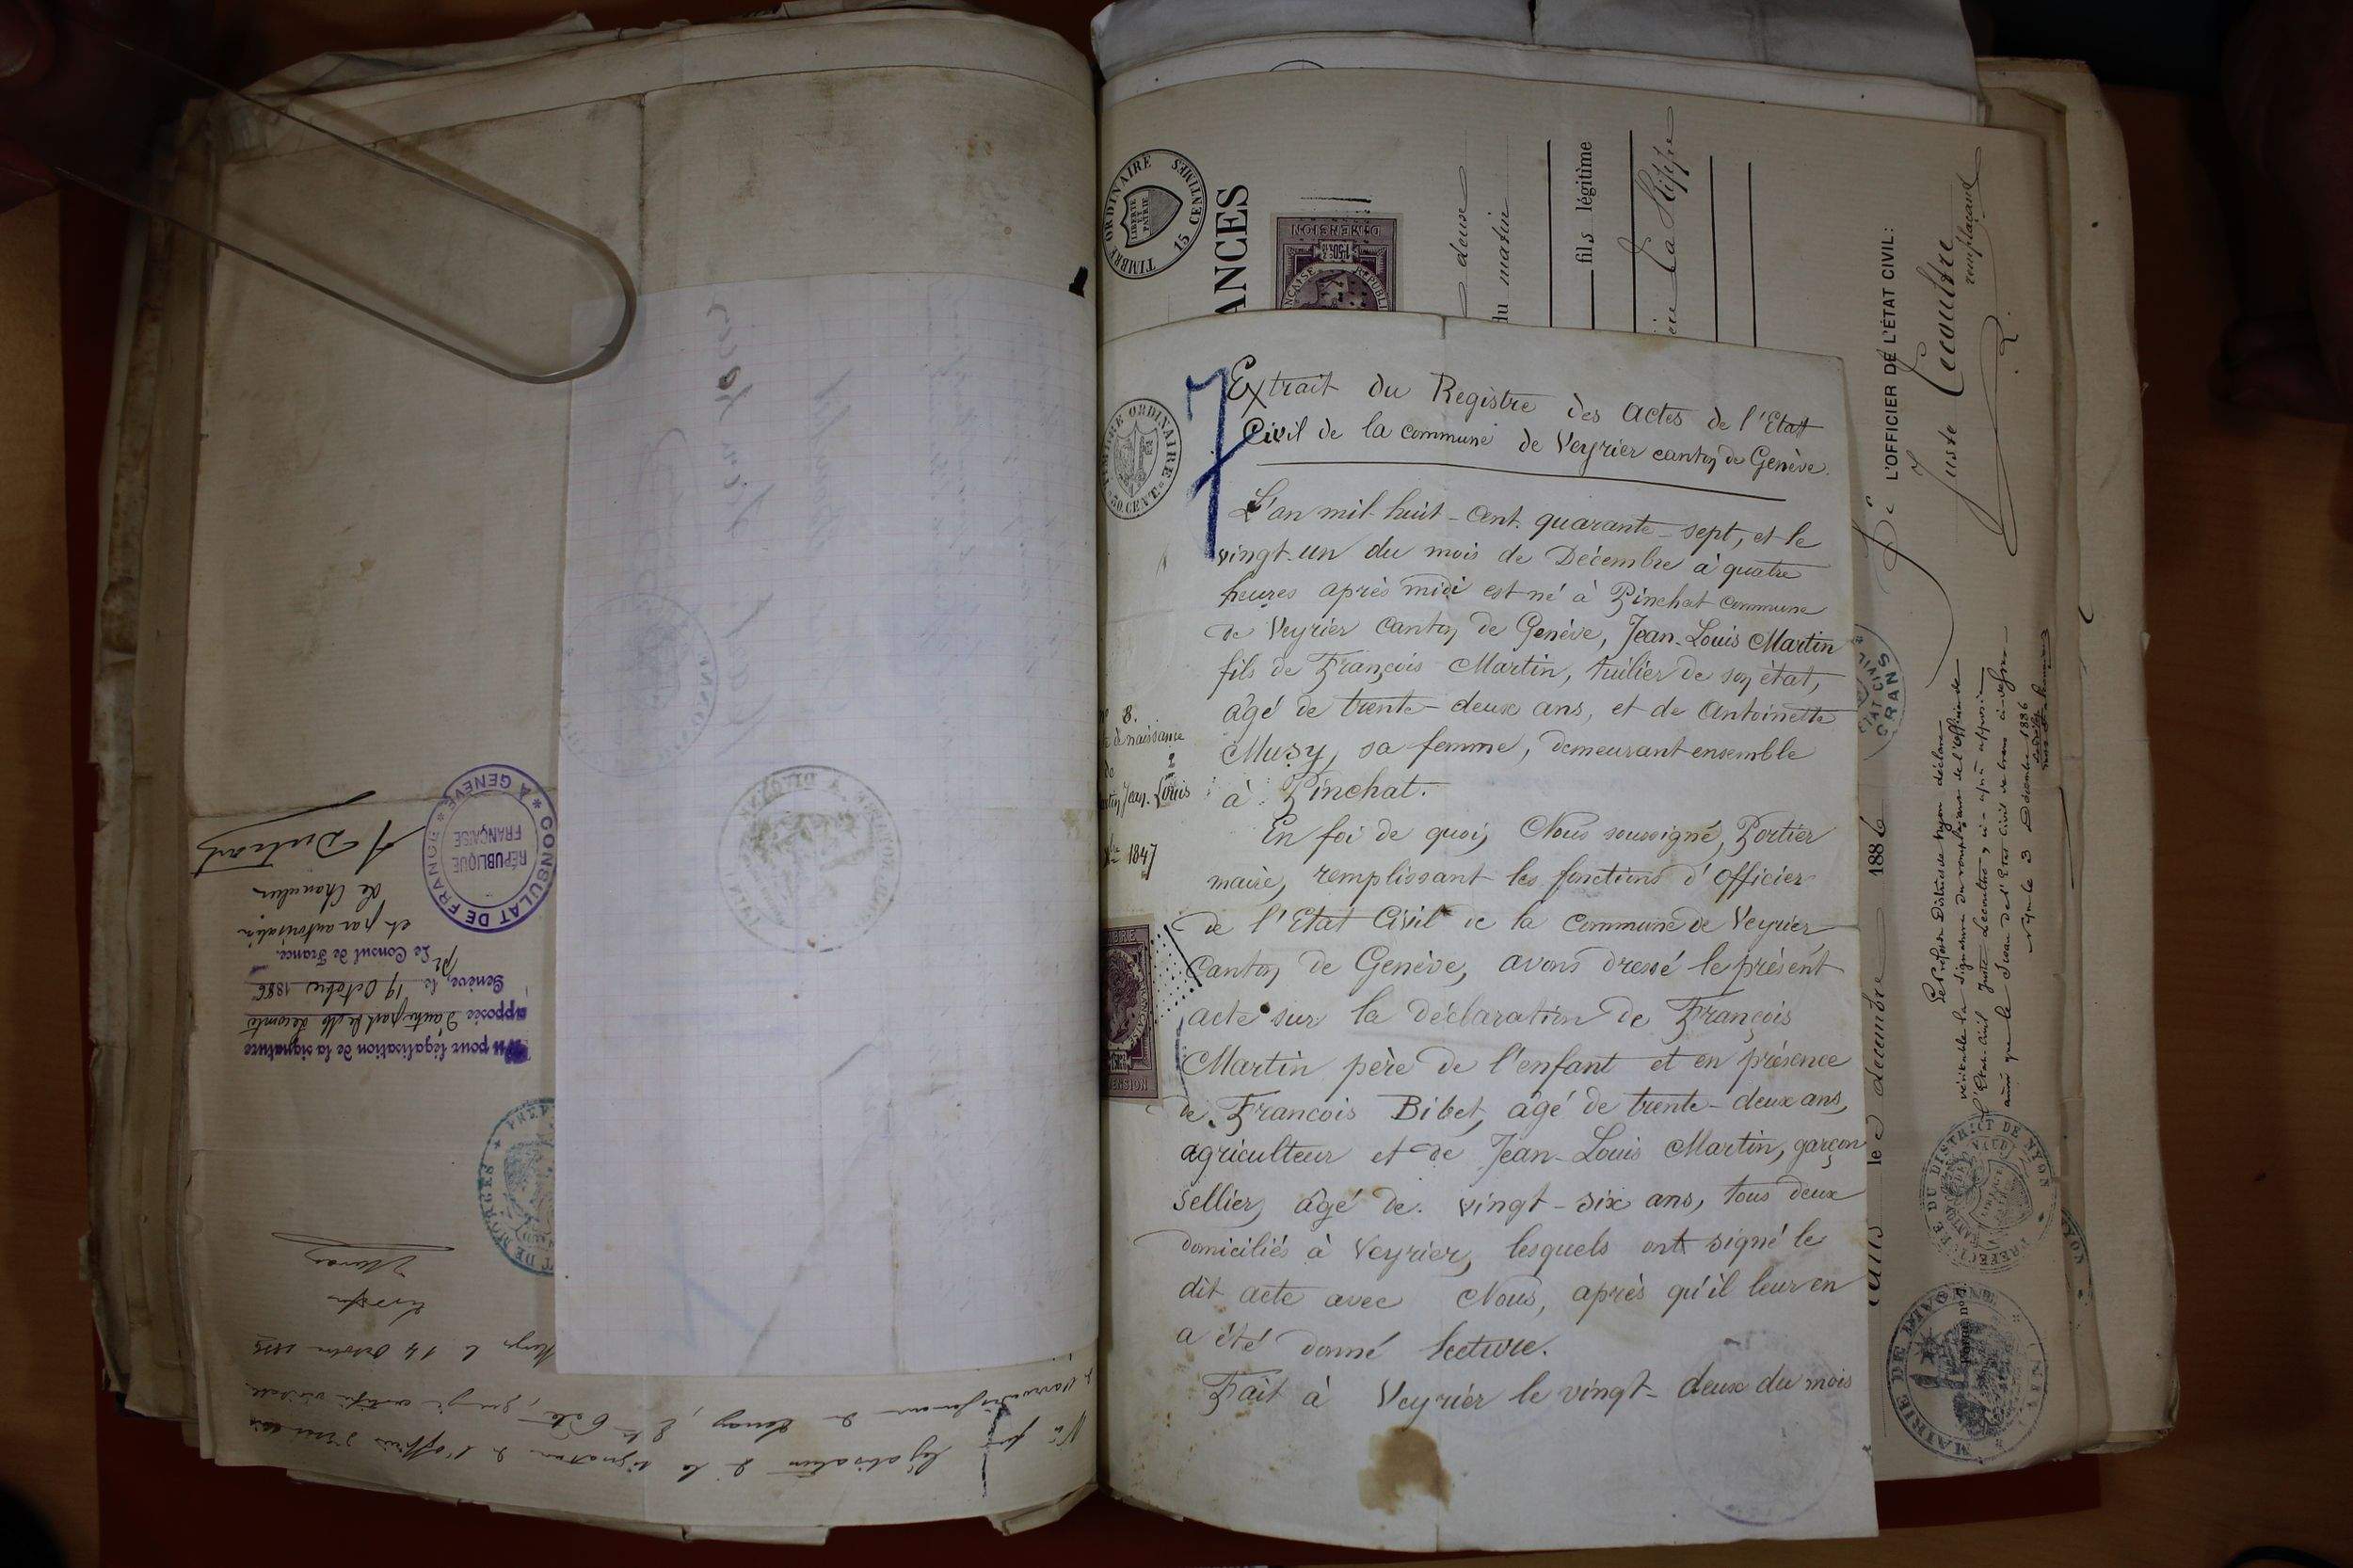 Extrait du Registre des Actes de l'Etat
Civil de la commune de Veyrier canton de Genève.
L'an mil-huit-cent quarante-sept, et le
vingt-un du mois de Décembre à quatre
heures après midi est né à Pinchat commune
de Veyrier canton de Genève, Jean-Louis Martin
fils de François Martin, tuilier de son état,
âgé de trente-deux ans, et de Antoinette
Musy, sa femme, demeurant ensemble
à Pinchat.
En foi de quoi, Nous soussigné, Portier
maire, remplissant les fonctions d'officier
de l'Etat Civil de la commune de Veyrier
canton de Genève, avons dressé le présent
acte sur la déclaration de François
Martin père de l'enfant et en présence
de François Bibet, âgé de trente-deux ans,
agriculteur et de Jean-Louis Martin, garçon
sellier, âgé de vingt-six ans, tous deux
domiciliés à Veyrier, lesquels ont signé le
dit acte avec Nous, après qu'il leur en
a été donné lecture.
Fait à Veyrier le vingt-deux du mois
8.
naissance
de
Jean-Louis
1847
TIMBRE ORDINAIRE
50 CENT.
TIMBRE ORDINAIRE 15 CENTIMES
LIBERTÉ ET PATRIE
ANCES
DIMENSION
deux
du matin
fils légitime
La Rippe
L'OFFICIER DE L'ÉTAT CIVIL:
Juste Lecoultre
remplaçant
ÉTAT CIVIL
CRANS
le 2 décembre 1886
Le Préfet du District de Nyon déclare
véritable la signature du remplaçant de l'officier de
l'Etat-civil Juste Lecoultre, ci-apposée
ainsi que le sceau de l'Etat civil de Crans
Nyon le 3 Décembre 1886
PRÉFECTURE DU DISTRICT DE NYON
MAIRIE DE DIVONNE
(AIN)
Vu pour légalisation de la signature
apposée d'autre part de Mr Lecomte
Genève, le 19 Octobre 1886
Le Consul de France.
et par autorisation
Le Chancelier
CONSULAT DE FRANCE * A GENÈVE *
RÉPUBLIQUE
FRANÇAISE
DE MORGES
Morges le 14 Octobre
Vu pour légalisation de la signature de l'officier d'état civil